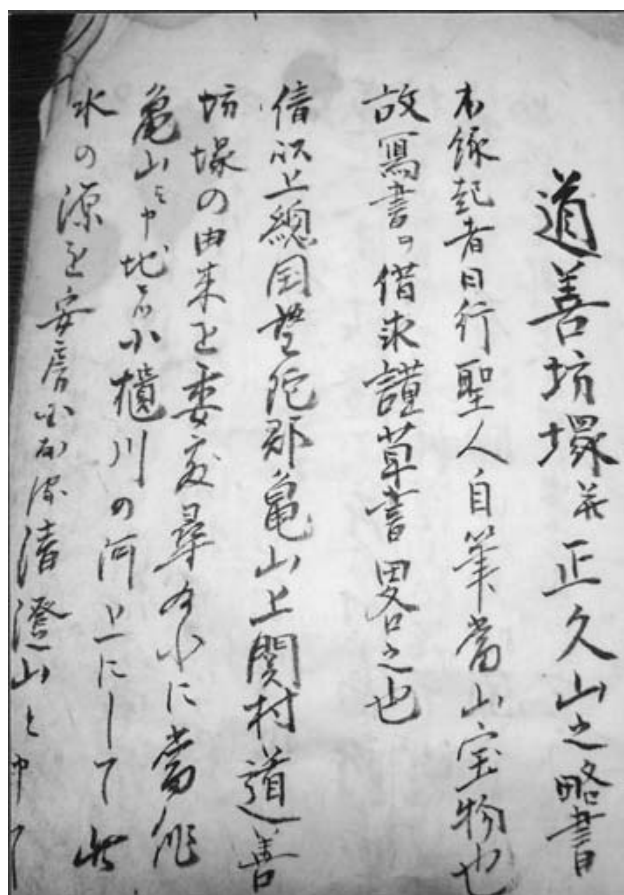 道善坊塚并正久山之略書
本縁起者日行聖人自筆當山宝物也
故寫書ヲ借求謹草書畧之也
倩以上總国望陀郡亀山上関村道善
坊塚の由来を委敷尋るに當所
亀山と申地者小櫃川の河上にして此
水の源を安房国清澄山と申て